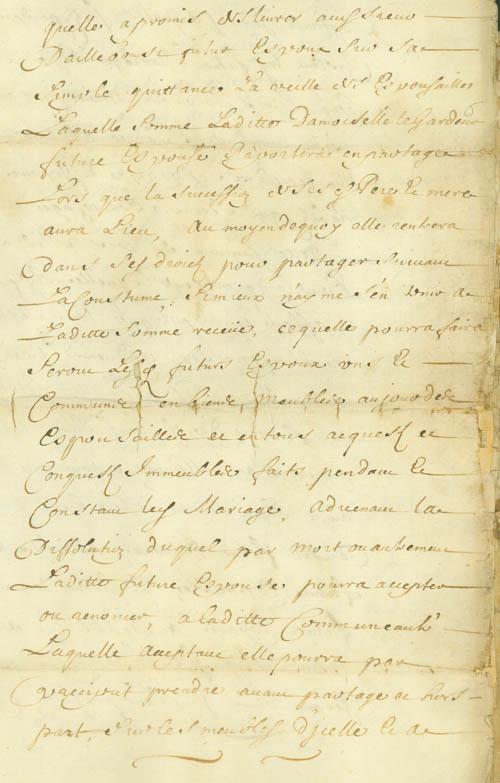 quelle a promis et s livrer auss
D futur Espoux sur sa
simple quittance La veille des Espousailles
Laquelle somme Laditte Damoiselle
future Espouse Raportera en partage
Lors que la succession de ses Pere et mere
aura Lieu, Au moyen de quoy elle rentrera
dans ses droicts pour partager suivant
La Coustume, si mieux n'ayme s'en tenir a
Laditte somme receüe, ce quelle pourra faire
Seront futurs Espoux uns et
Communs en biens, meubles au jour des
Espousailles et en tous acquests et
Conquests Immeubles faits pendant et
Constant Mariage, advenant la
Dissolution duquel par mort ou autrement
Laditte future Espouse pourra accepter
ou renoncer, a laditte Communeauté
Laquelle acceptant elle pourra par
preciput prendre avant partage et hors
part, sur les meubles d'jcelle et de